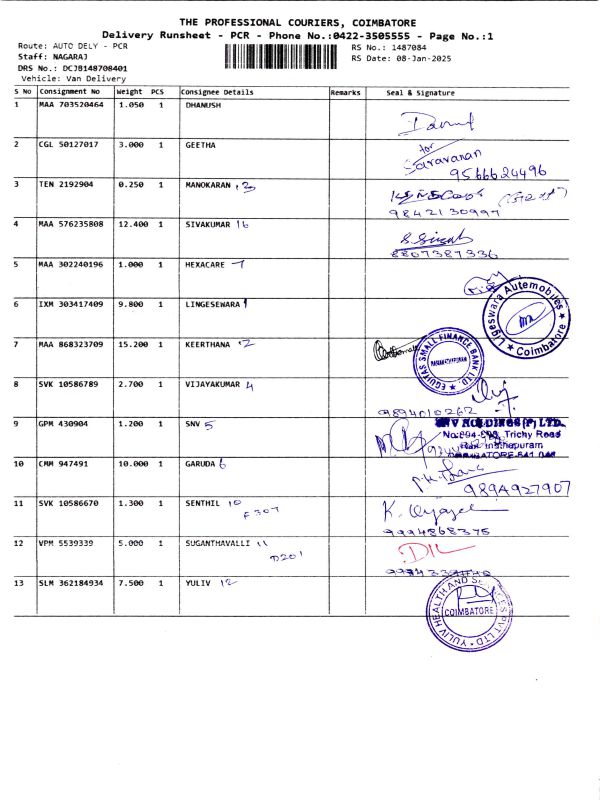 THE PROFESSIONAL COURIERS, COIMBATORE
Delivery Runsheet - PCR - Phone No.:0422-3505555 - Page No.:1
Route: AUTO DELY - PCR
RS No.: 1487084
Staff: NAGARAJ
RS Date: 08-Jan-2025
DRS No.: DCJ8148708401
Vehicle: Van Delivery
S No Consignment No Weight PCS Consignee Details Remarks Seal & Signature
1 MAA 703520464 1.050 1 DHANUSH
2 CGL 50127017 3.000 1 GEETHA
for
Saravanan
9566624496
3 TEN 2192904 0.250 1 MANOKARAN 3
9842130997
4 MAA 576235808 12.400 1 SIVAKUMAR 16
8807387336
5 MAA 302240196 1.000 1 HEXACARE 7
6 IXM 303417409 9.800 1 LINGESEWARA 1
Ligeswara Automobiles
Coimbatore
7 MAA 868323709 15.200 1 KEERTHANA 2
EQUITAS SMALL FINANCE BANK LTD.
8 SVK 10586789 2.700 1 VIJAYAKUMAR 4
9894010262
9 GPM 430904 1.200 1 SNV 5
SNV HOLDINGS (P) LTD.
Trichy Road
10 CMM 947491 10.000 1 GARUDA 6
11 SVK 10586670 1.300 1 SENTHIL 10
F307
9994868375
12 VPM 5539339 5.000 1 SUGANTHAVALLI 11
D201
13 SLM 362184934 7.500 1 YULIV 12
YULIV HEALTH AND SERVICES PVT LTD
COIMBATORE